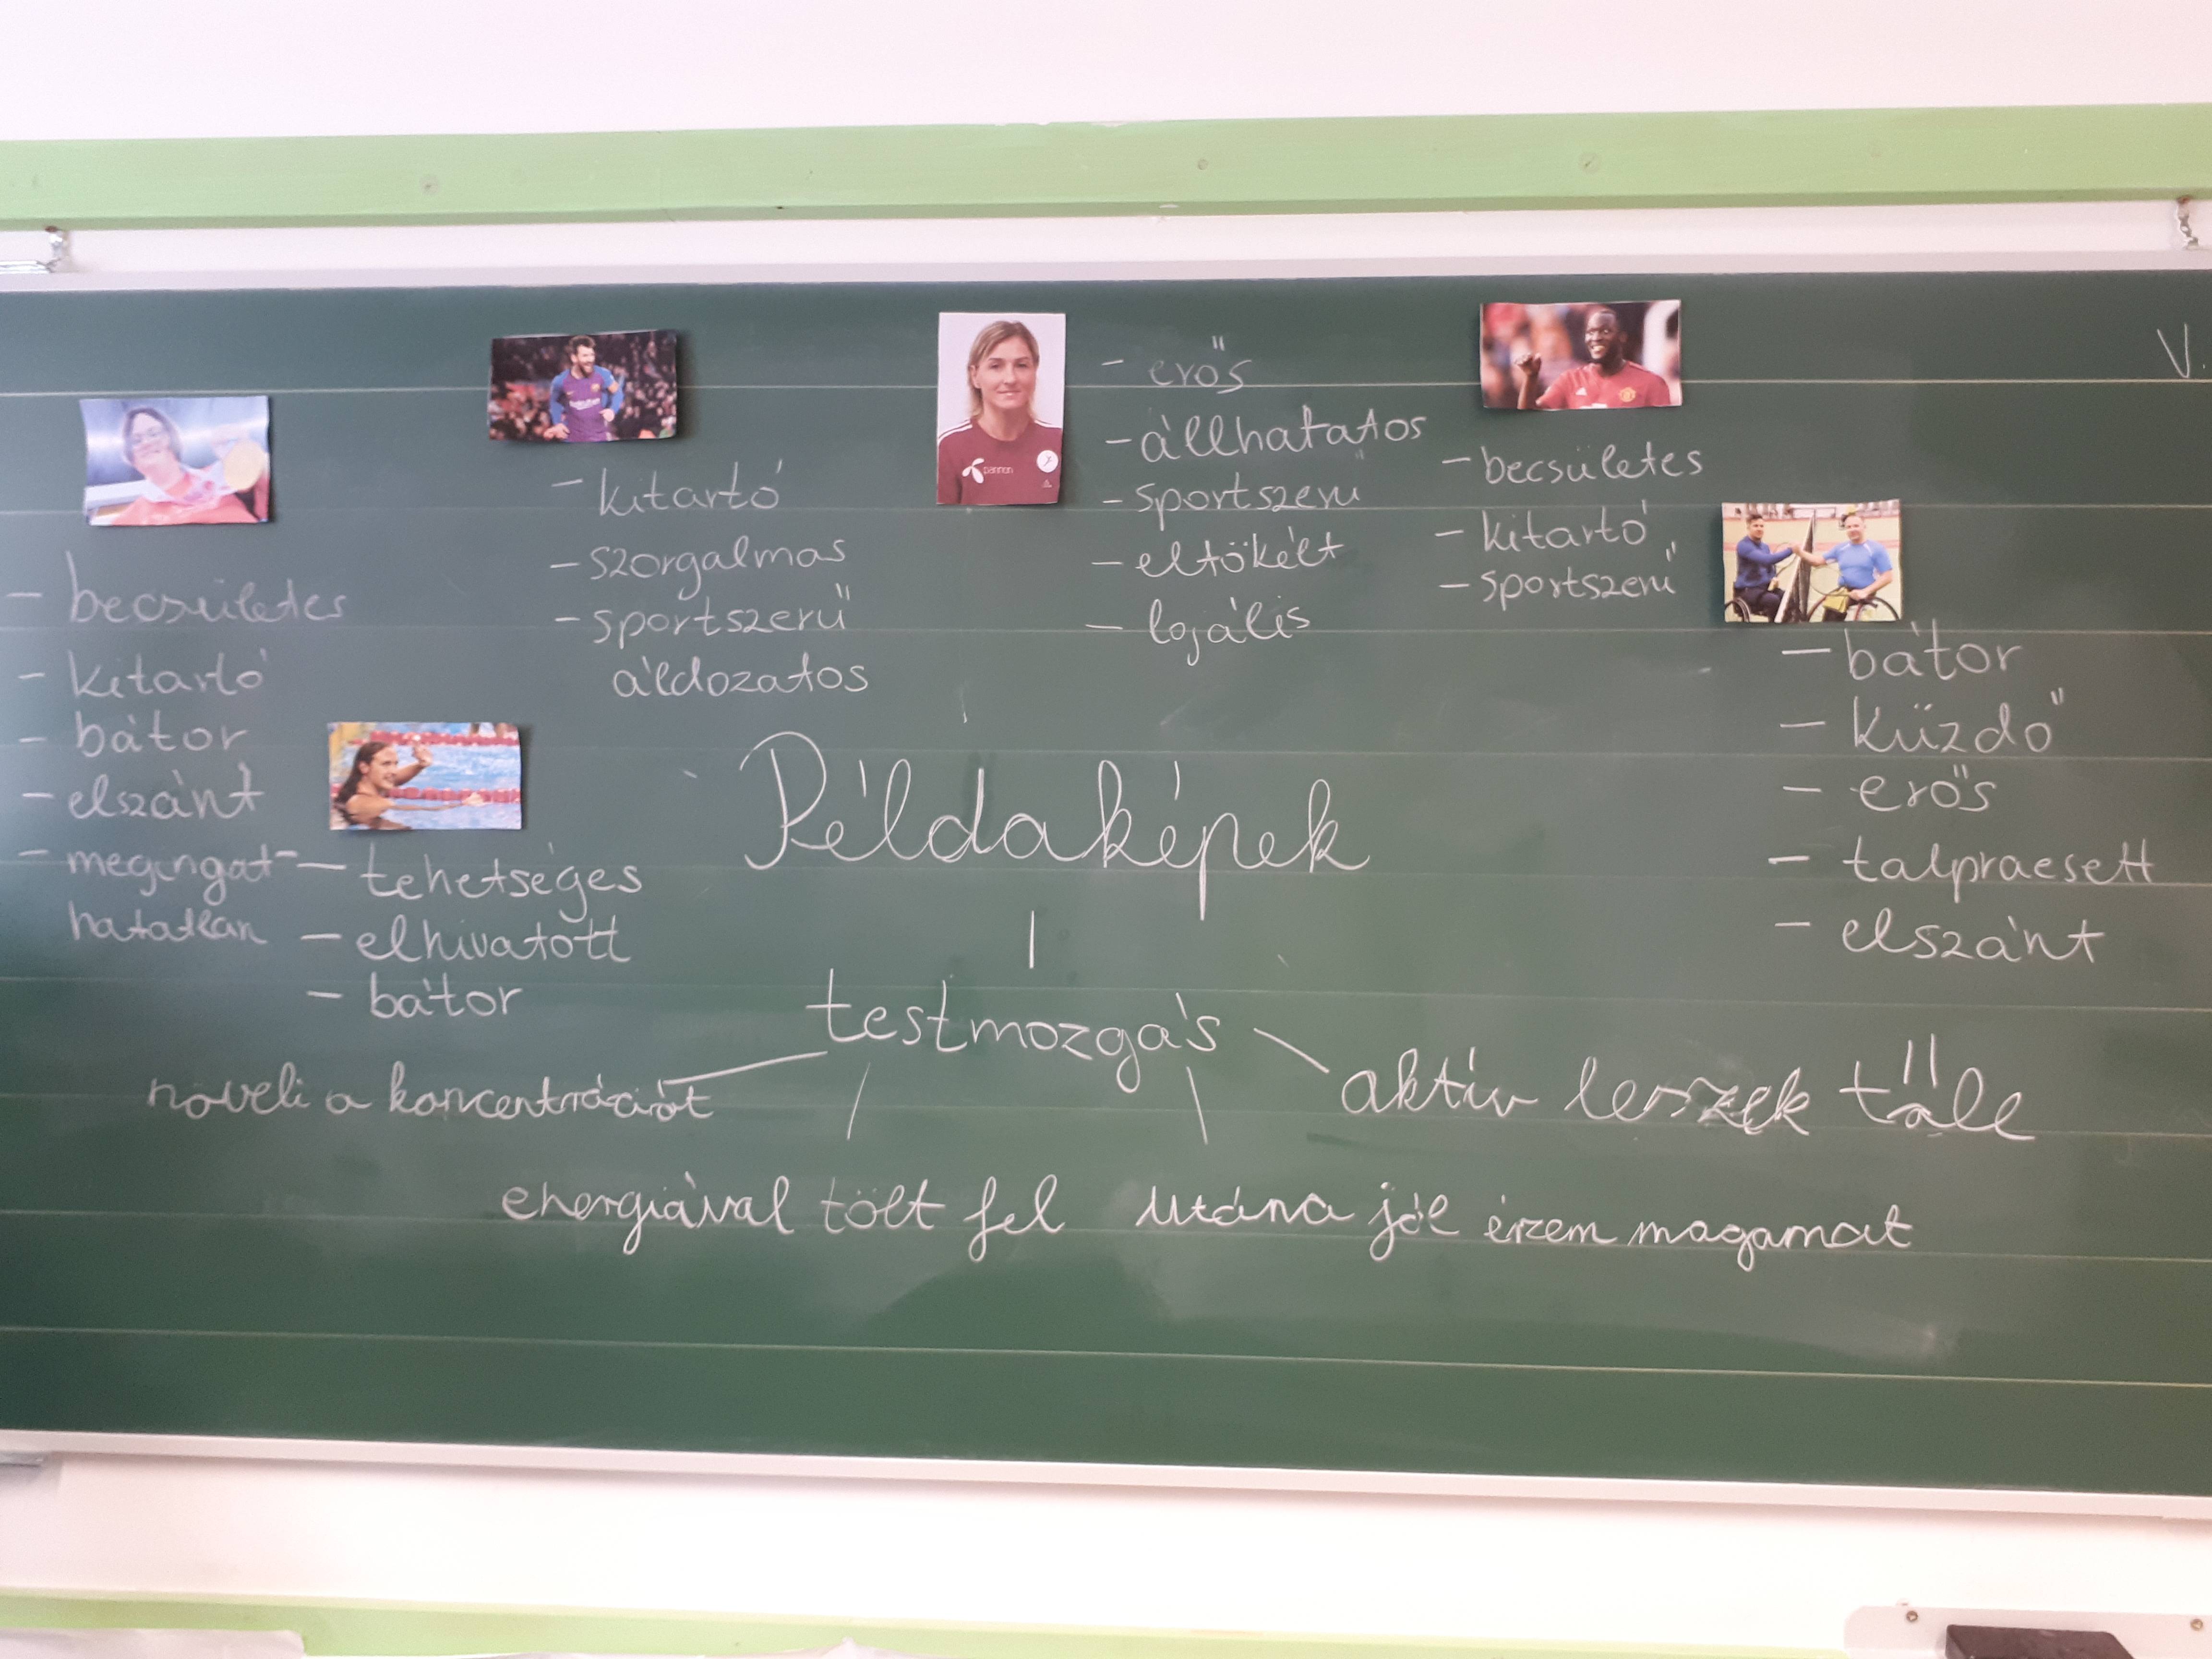 V.
- becsületes
- kitartó
- bátor
- elszánt
- megingat-
hatatlan
- kitartó
- szorgalmas
- sportszerű
áldozatos
- tehetséges
- elhivatott
- bátor
- erős
- állhatatos
- sportszerű
- eltökélt
- lojális
- becsületes
- kitartó
- sportszerű
- bátor
- küzdő
- erős
- talpraesett
- elszánt
Példaképek
testmozgás
növeli a koncentrációt
aktív leszek től​e
energiával tölt fel
utána jól érzem magamat